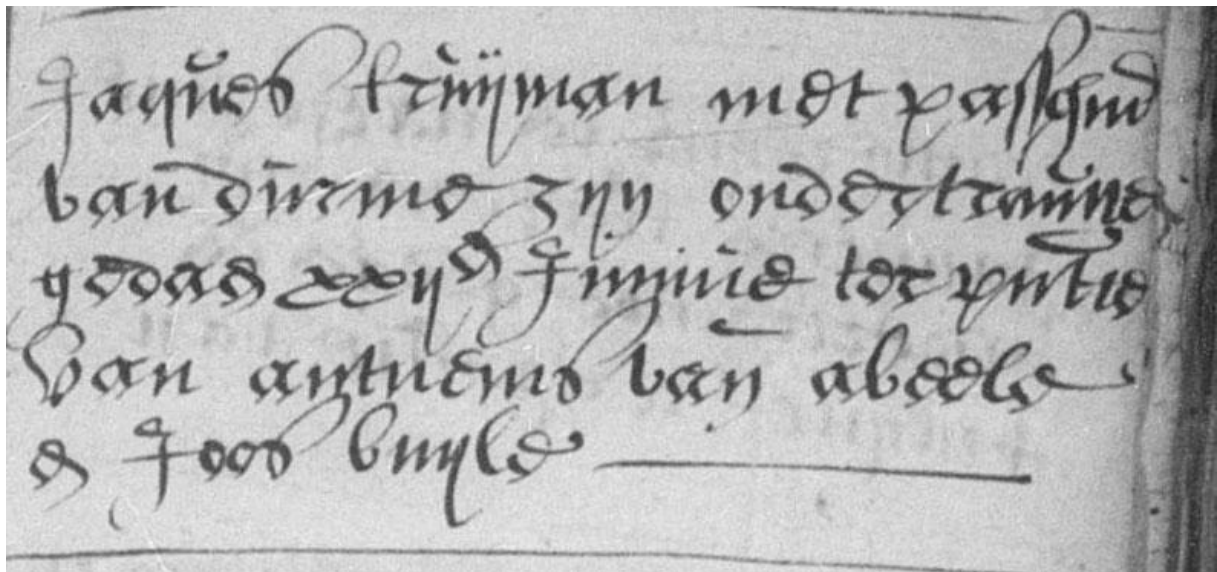 Jaques truijman met passchin̄
van duerme zijn ondertrauwe
gedaen xxijen Junius ter pn̄tie
van anthuenis van abeele
en Joos buijle